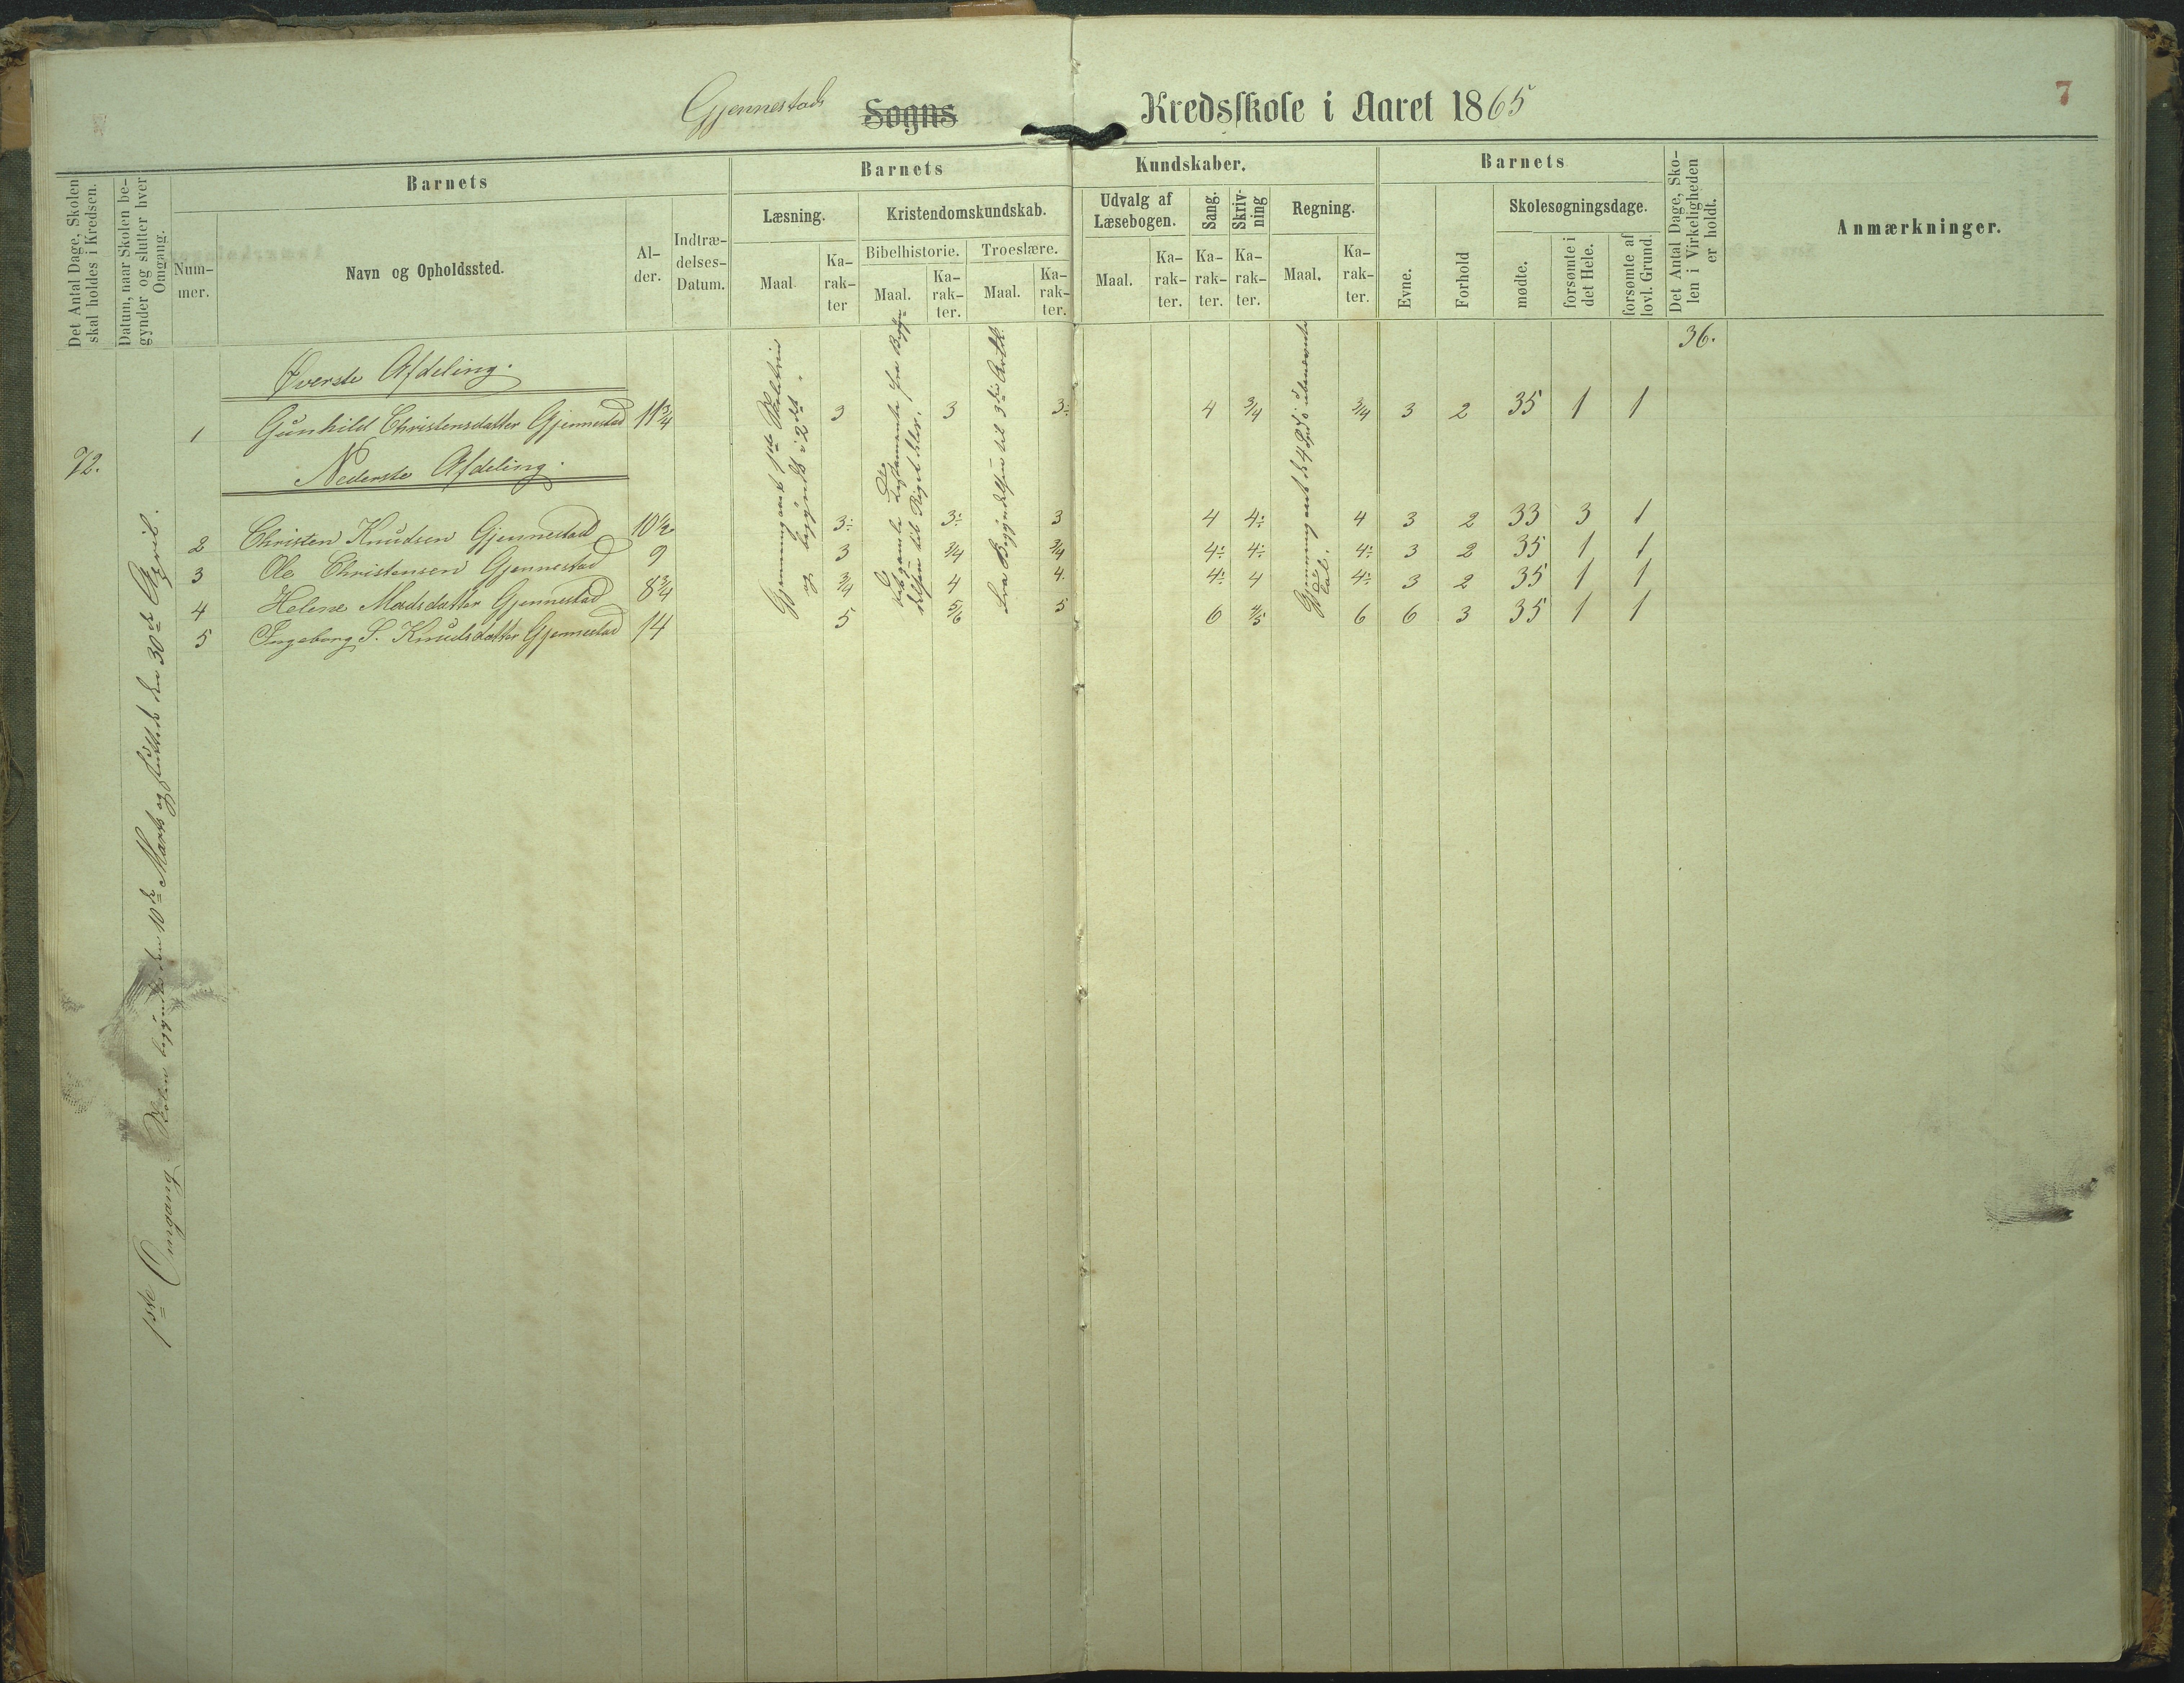 Gjennestads Sogns Kredsskole i Aaret 1865
7
Det Antal Dage, Skolen skal holdes i Kredsen.
Datum, naar Skolen begynder og slutter hver Omgang.
Barnets
Nummer.
Navn og Opholdssted.
Alder.
Indtrædelses-Datum.
Barnets Kundskaber.
Læsning.
Maal
Karakter
Kristendomskundskab.
Bibelhistorie.
Maal.
Karakter.
Troeslære.
Maal.
Karakter.
Udvalg af Læsebogen.
Maal.
Karakter.
Sang.
Karakter.
Skrivning
Karakter.
Regning.
Maal.
Karakter.
Barnets
Evne.
Forhold
Skolesøgningsdage.
mødte.
forsømte i det Hele.
forsømte af lovl. Grund.
Det Antal Dage, Skolen i Virkeligheden er holdt.
Anmærkninger.
36.
72.
1ste Omgang Skolen begyndte den 10de Marts og sluttede den 30te April.
Gjennemgaaet 1ste Skoletrin og begyndt i 2det.
Det gamle Testamente fra Begyndelsen til Riget
fra Begyndelsen til 3die Artk.
Gjennemgaaet de 4 Sp. i ubenævnte Tal.
Øverste Afdeling.
1 Gunhild Christensdatter Gjennestad 11 3/4 3 3 3÷ 4 3/4 3/4 3 2 35 1 1
Nederste Afdeling.
2 Christen Knudsen Gjennestad 10 1/2 3÷ 3÷ 3 4 4÷ 4 3 2 33 3 1
3 Ole Christensen Gjennestad 9 3 3/4 3/4 4÷ 4÷ 4÷ 3 2 35 1 1
4 Helene Madsdatter Gjennestad 8 3/4 3/4 4 4. 4÷ 4 4÷ 3 2 35 1 1
5 Ingeborg S. Knudsdatter Gjennestad 14 5 5/6 5 6 4/5 6 6 3 35 1 1